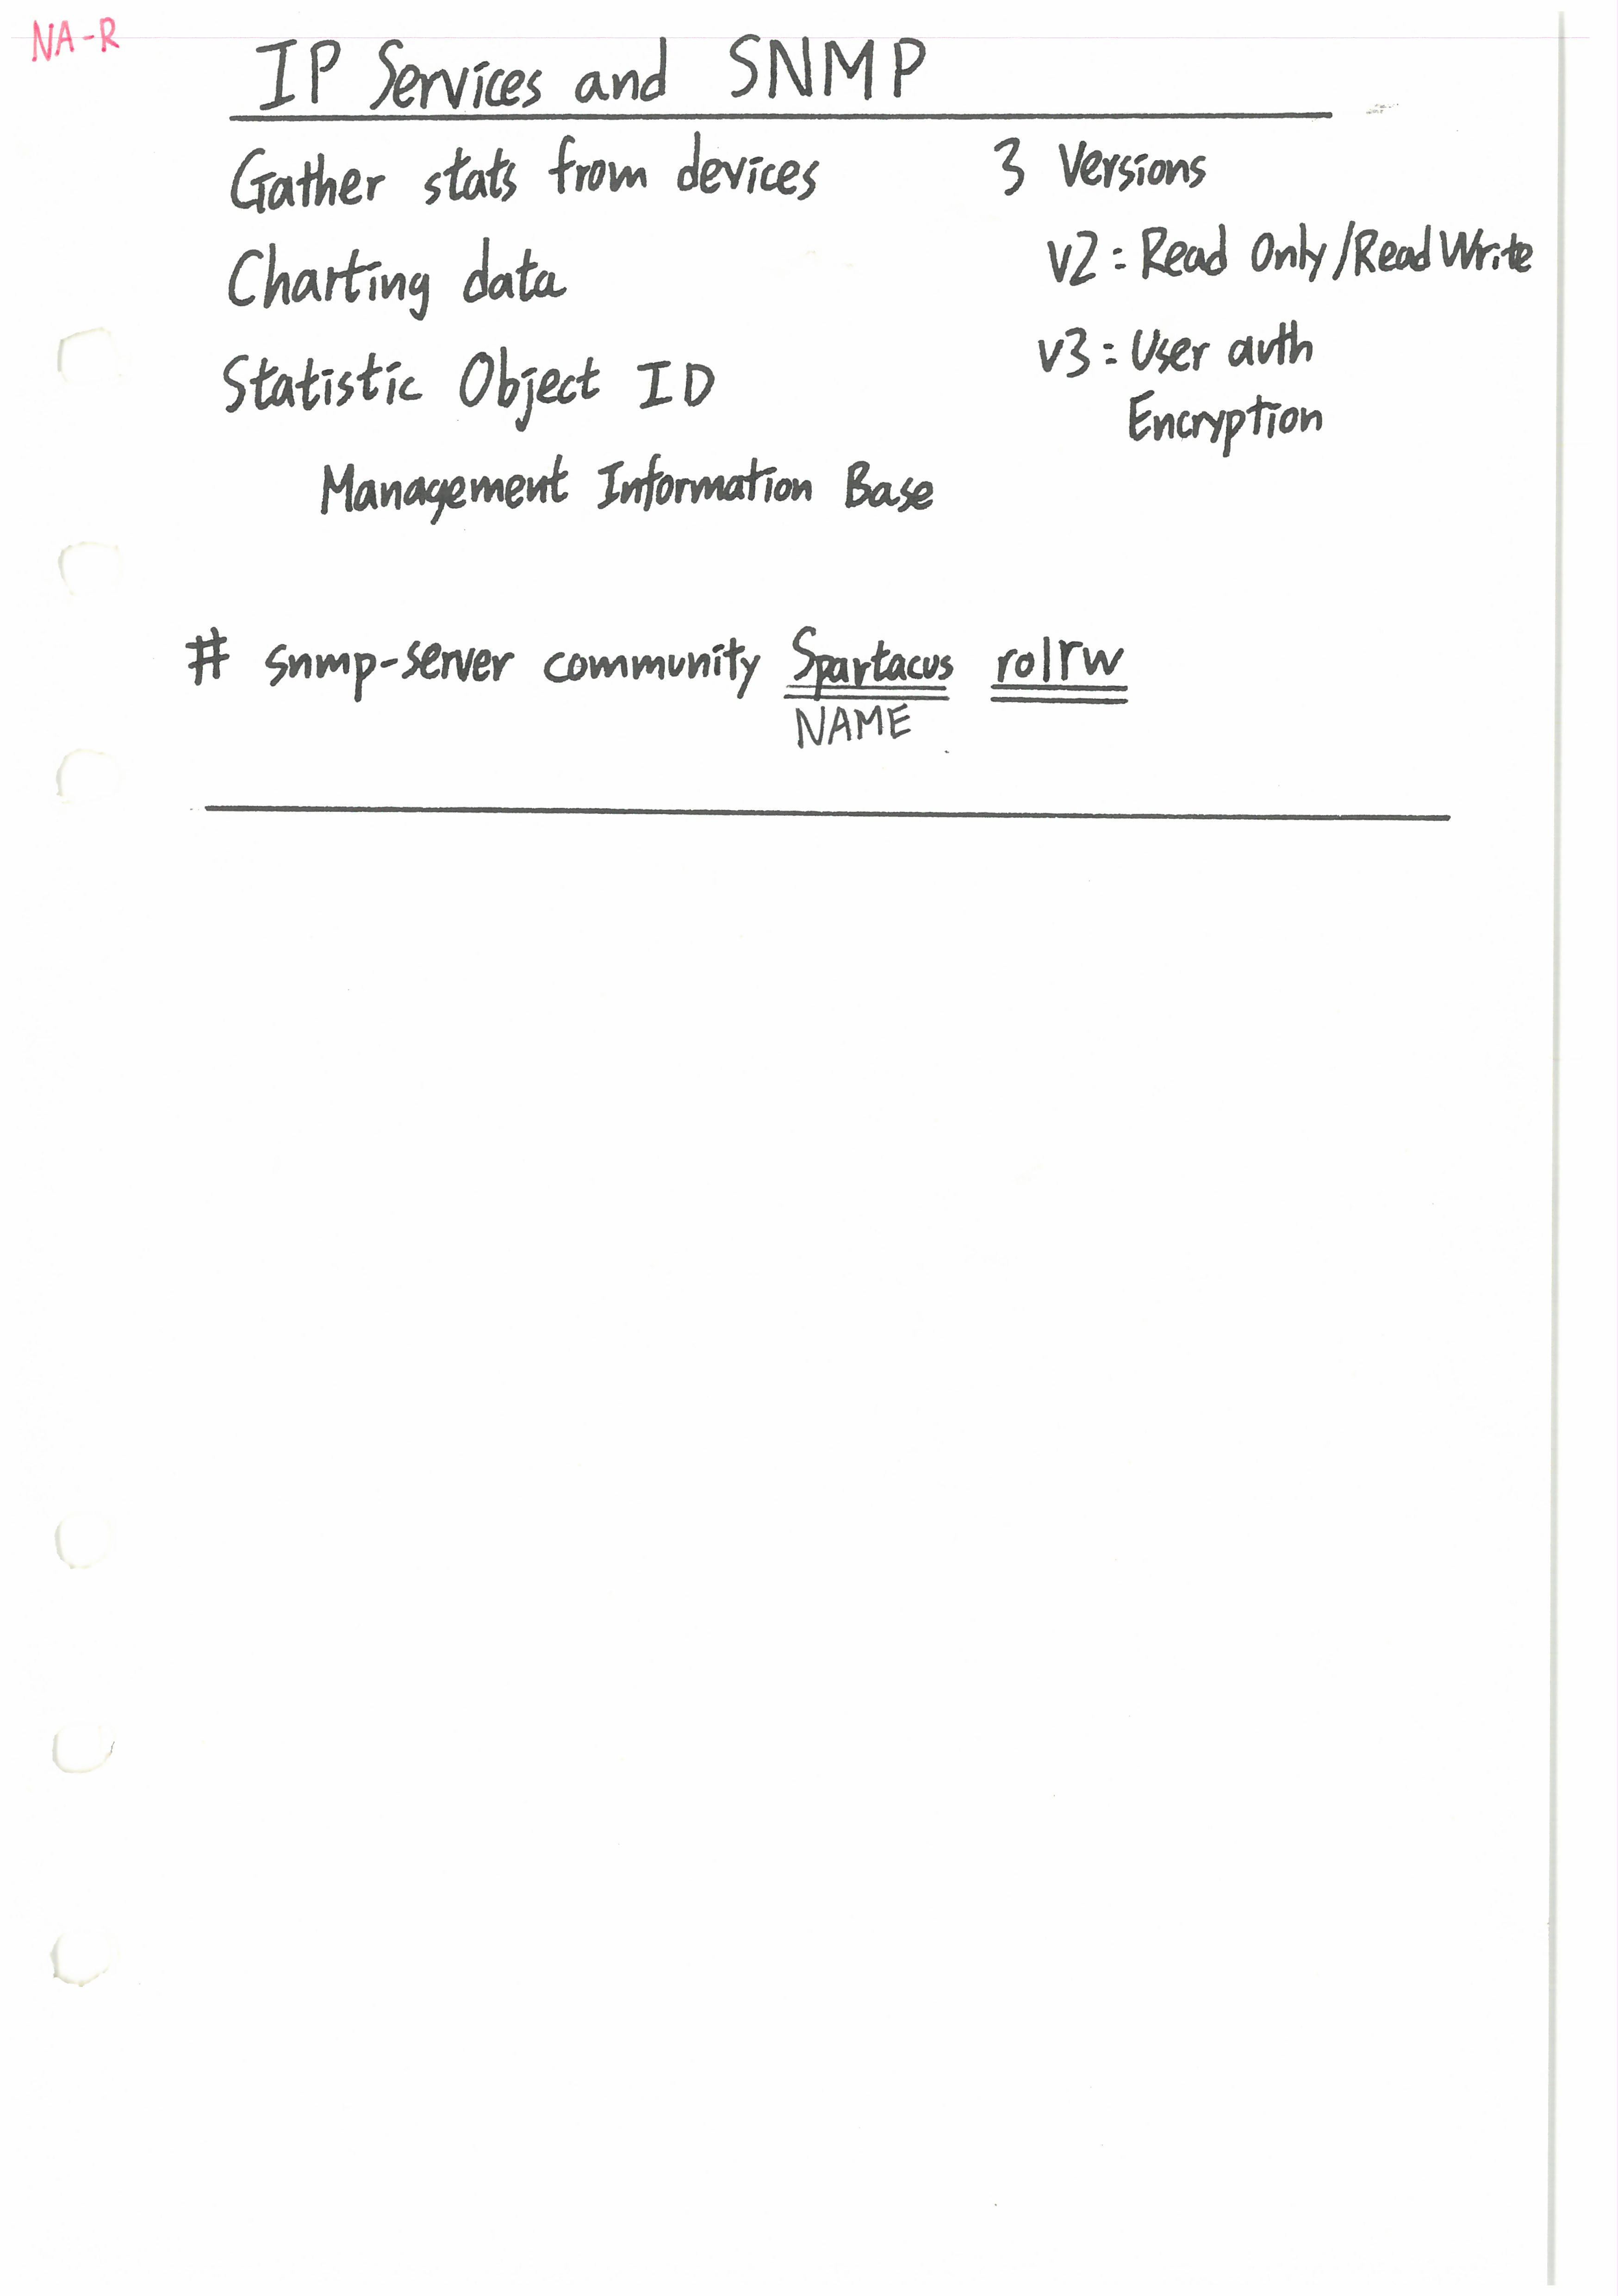 NA-R
IP Services and SNMP
Gather stats from devices
Charting data
Statistic Object ID
Management Information Base
3 Versions
v2: Read Only/Read Write
v3: User auth
Encryption
# snmp-server community Spartacus ro|rw
NAME